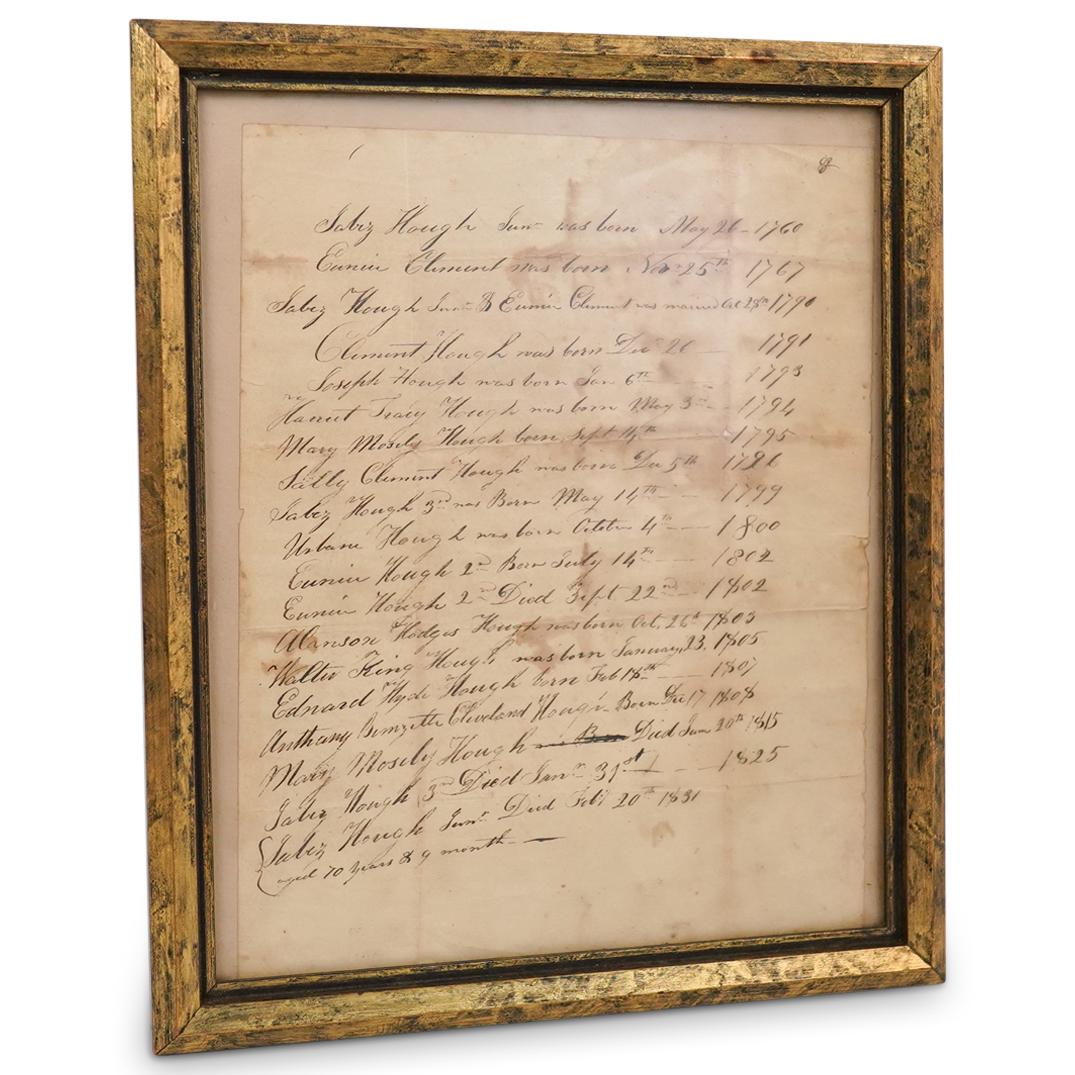 Jabez Hough Junr was born May 26 - 1760
Eunice Clement was born Nov 25th 1767
Jabez Hough Junr & Eunice Clement was married Oct 28th 1790
Clement Hough was born Dec 20 — 1791
Joseph Hough was born Jan 6th — 1793
Harriet Tracy Hough was born May 3rd - 1794
Mary Mosely Hough born Sept 14th 1795
Sally Clement Hough was born Dec 5th 1796
Jabez Hough 3rd was Born May 14th - 1799
Urbane Hough was born October 4th — 1800
Eunice Hough 2d Born July 14th — 1802
Eunice Hough 2nd Died Sept 22nd - 1802
Alanson Hodges Hough was born Oct. 26th 1803
Walter King Hough was born January 23, 1805
Edward Hyde Hough born Feb 18th — 1807
Anthony Cleveland Hough - Born Dec 17 1808
Mary Mosely Hough Died Jan 20th 1815
Jabez Hough 3rd Died Janr 31st - 1825
Jabez Hough Junr Died Feb 20th 1831
aged 70 years & 9 month —